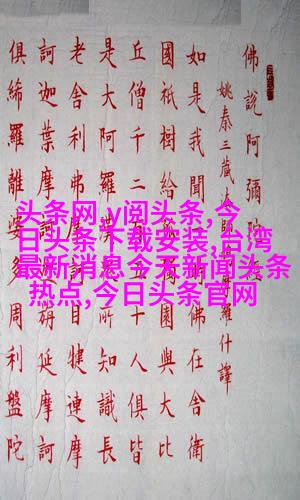 佛說阿彌陀
姚秦三藏法師羅什譯
如是我聞佛在舍衛
國祇樹給園與大比
丘僧千二五十人俱皆
是大阿羅漢所知識長
老舍利弗摩目犍連摩
訶迦葉摩訶旃延摩訶
俱絺羅離婆多周利盤陀
头条网,y阅头条,今
日头条下载安装,台湾
最新消息今天新闻头条
热点,今日头条官网